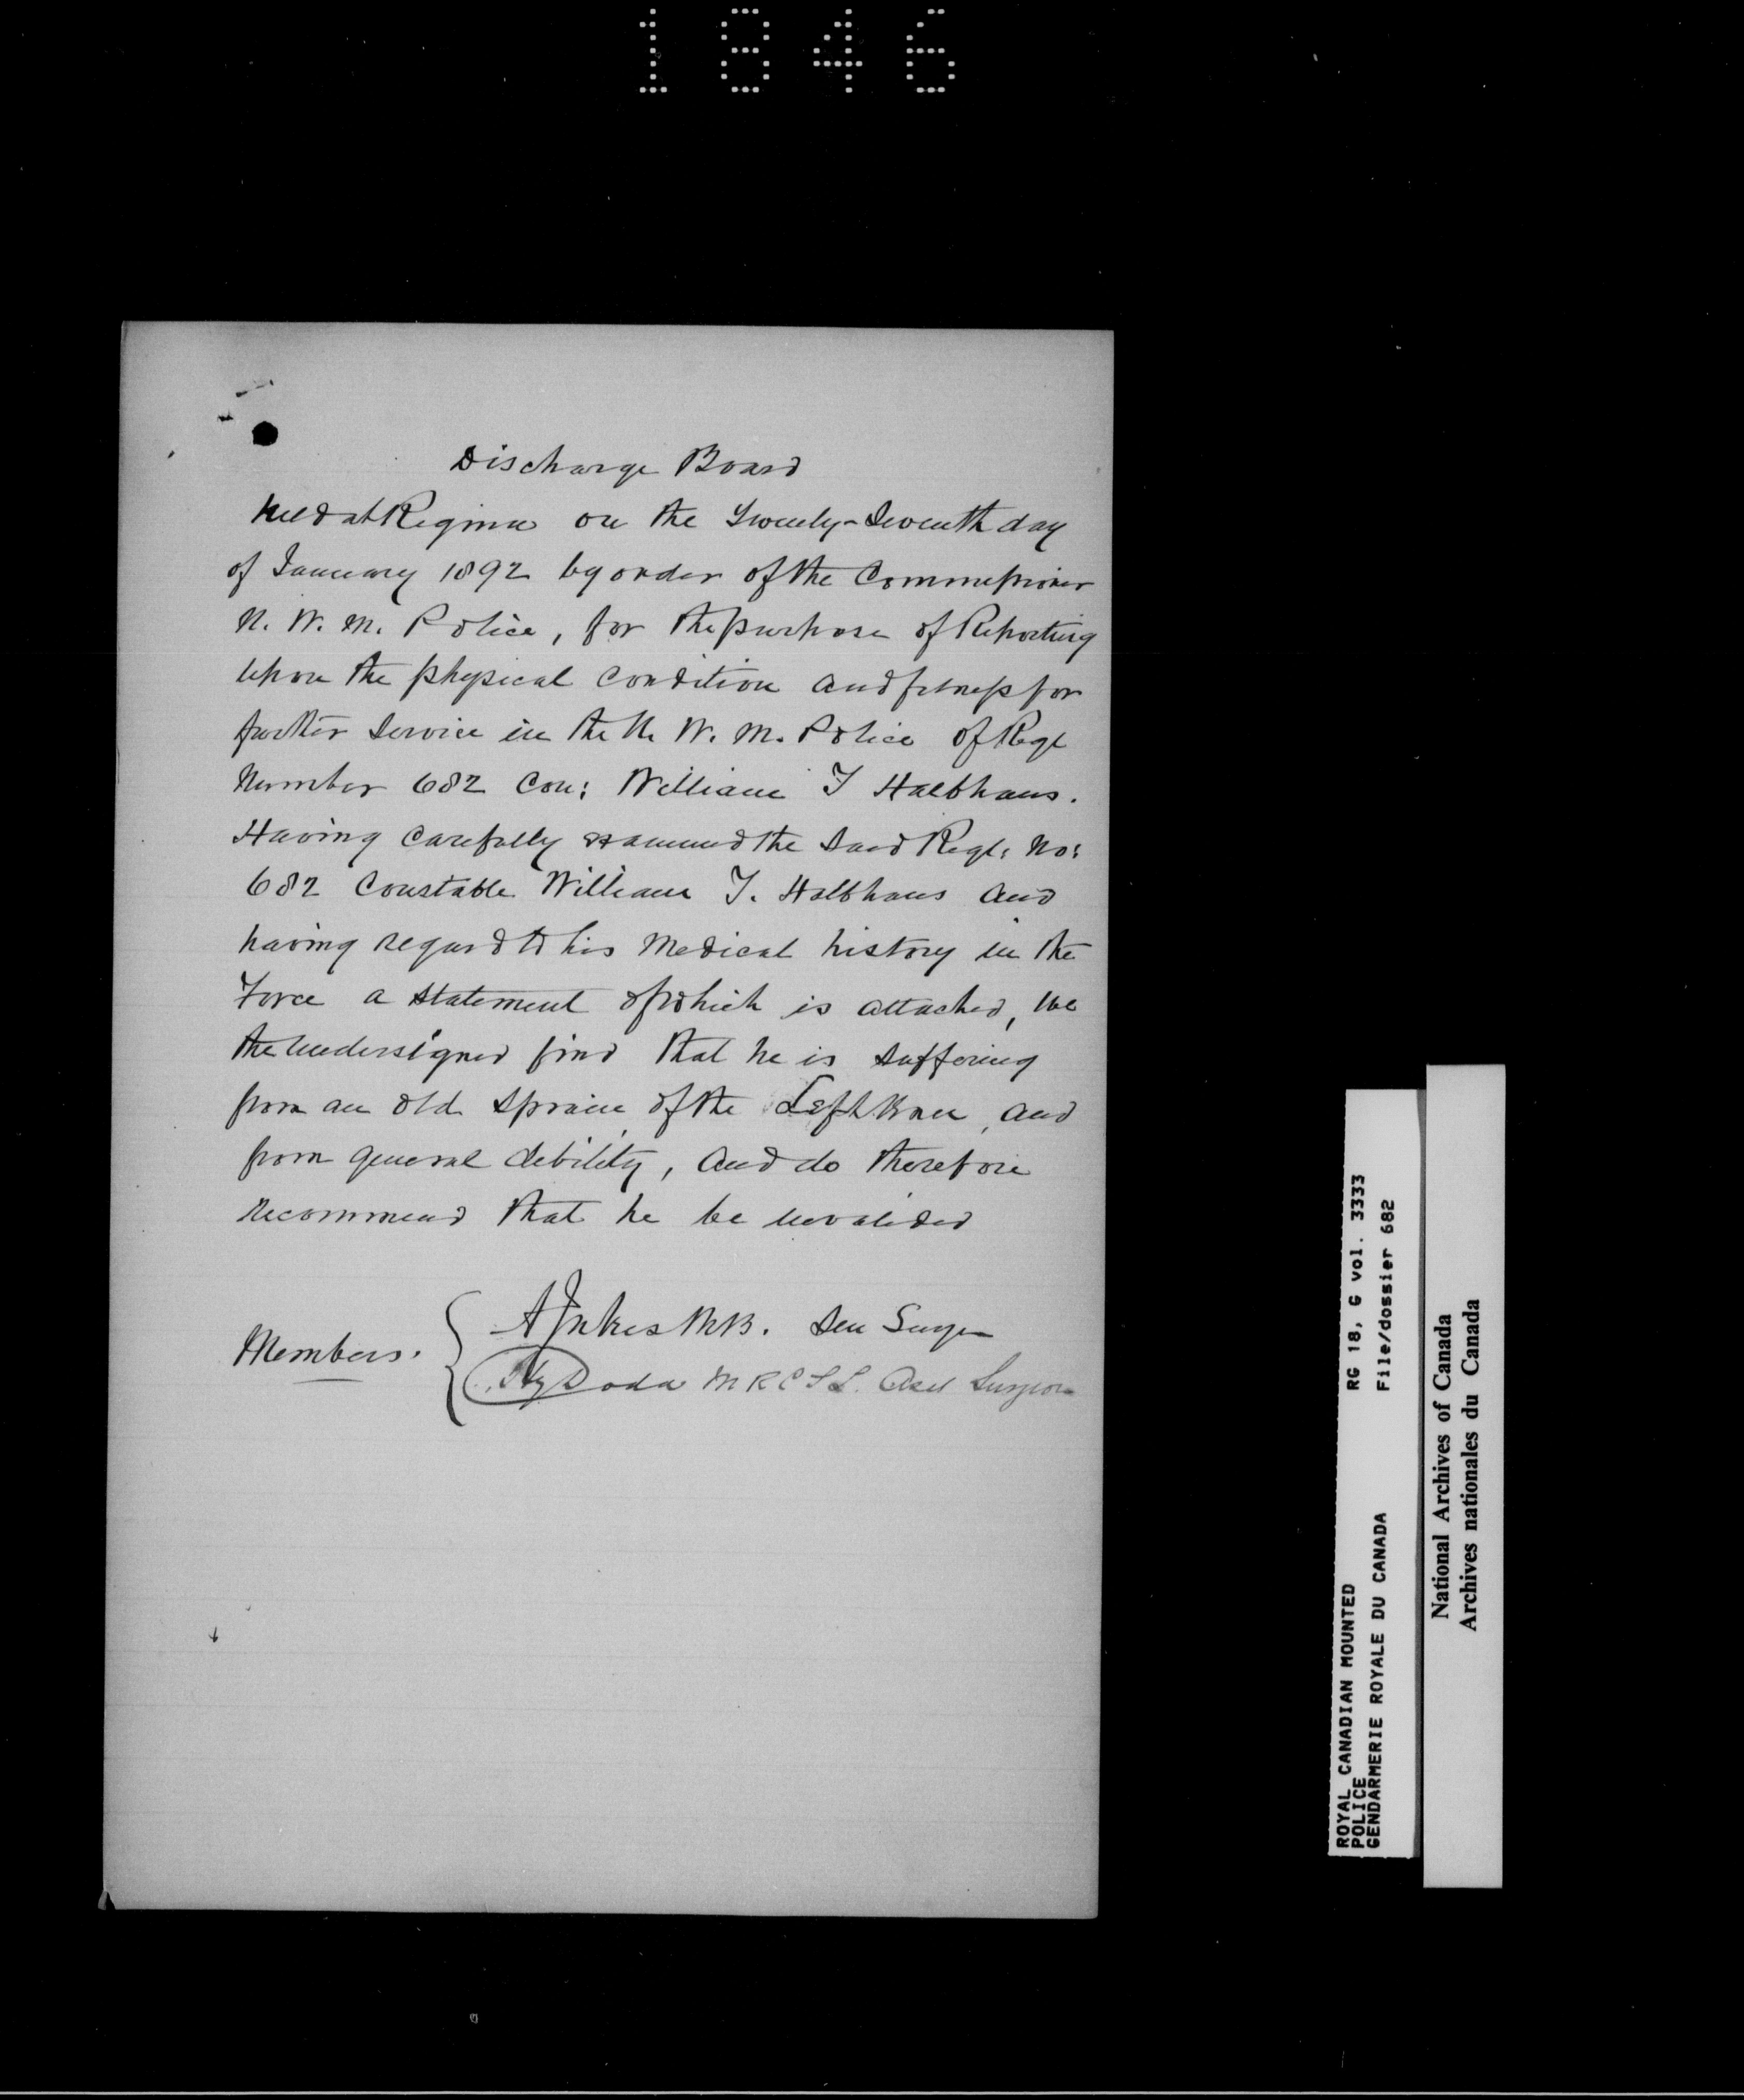 1846
Discharge Board
held at Regina on the Twenty-Seventh day
of January 1892 by order of the Commissioner
N. W. M. Police, for the purpose of Reporting
upon the physical condition and fitness for
further Service in the N. W. M. Police of Regl
Number 682 Con: William F Halbhaus.
Having carefully examined the said Regl: No:
682 Constable William F. Halbhaus and
having regard to his Medical history in the
Force a statement of which is attached, we
the undersigned find that he is suffering
from an old sprain of the Left Knee, and
from general debility, and do therefore
recommend that he be invalided
Members.
A Jukes M.B. Sen Surgeon
Hy Dodd M R C S L. Asst Surgeon
ROYAL CANADIAN MOUNTED RG 18, G vol. 3333
POLICE
GENDARMERIE ROYALE DU CANADA File/dossier 682
National Archives of Canada
Archives nationales du Canada